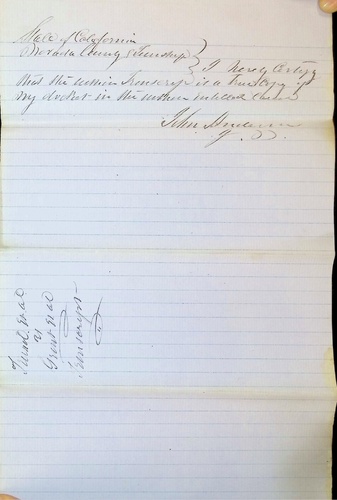 State of California
Nevada County & Township } I hereby Certify
that the within Transcript is a true Copy of
my docket in the within entitled Cause
John Anderson
J. P.
et al
vs
Grant et al
Transcript